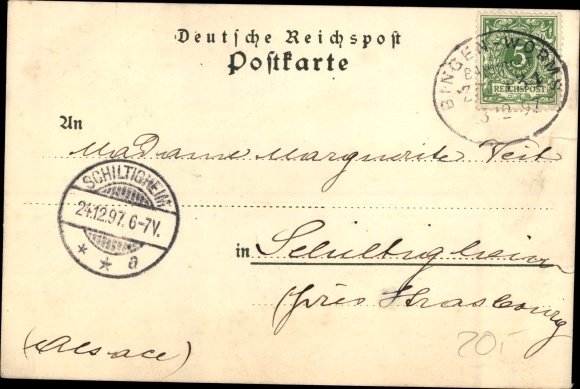 Deutsche Reichspost
Postkarte
5
REICHSPOST
BINGEN-WORMS
An
Madame Marguerite Veit
SCHILTIGHEIM
24.12.97. 6-7V.
* * a
in Schiltigheim
(près Strasbourg
(Alsace)
20.-